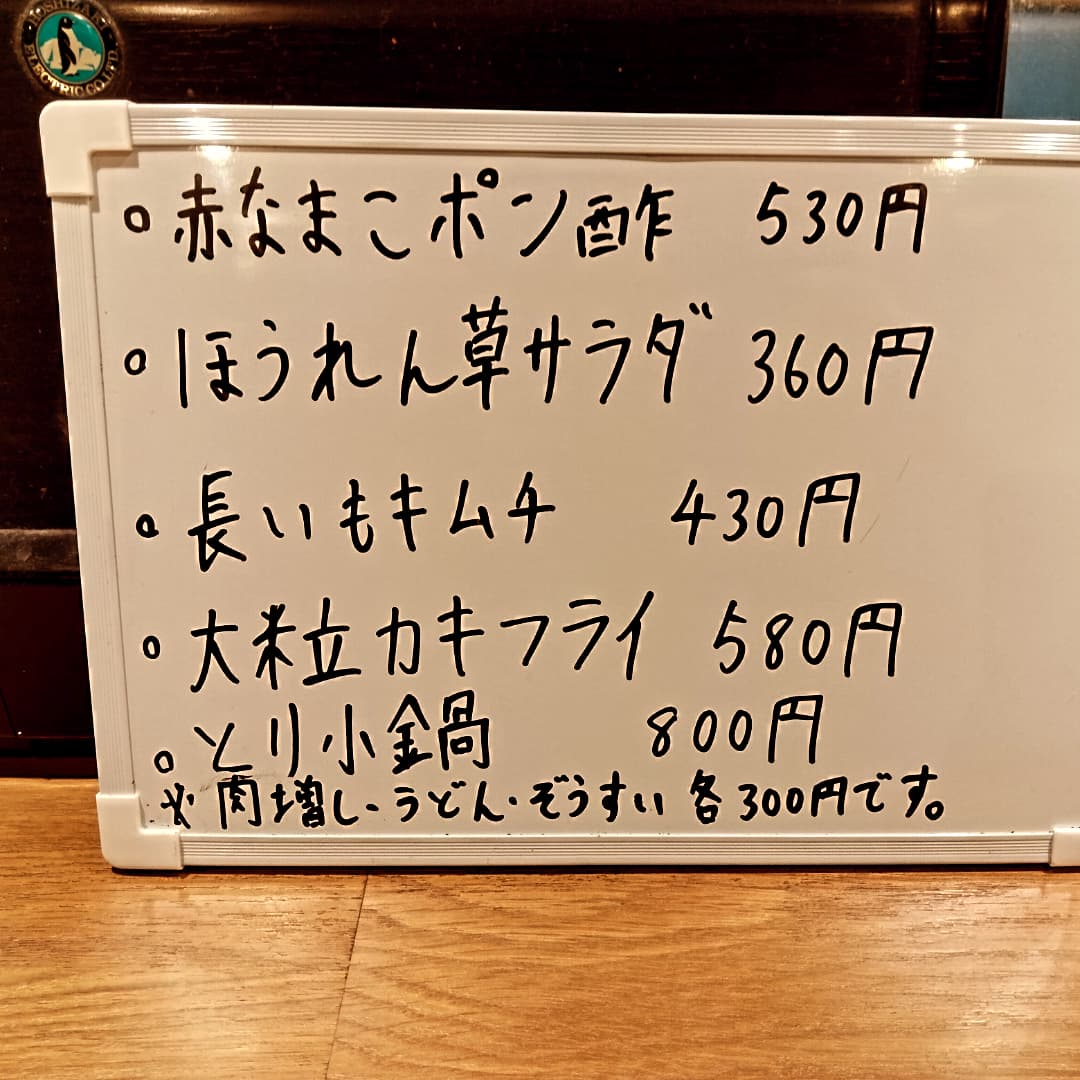 HOSHIZAKI
ELECTRIC CO., LTD.
○赤なまこポン酢 530円
○ほうれん草サラダ 360円
○長いもキムチ 430円
○大粒カキフライ 580円
○とり小鍋 800円
※肉増し・うどん・ぞうすい 各300円です。